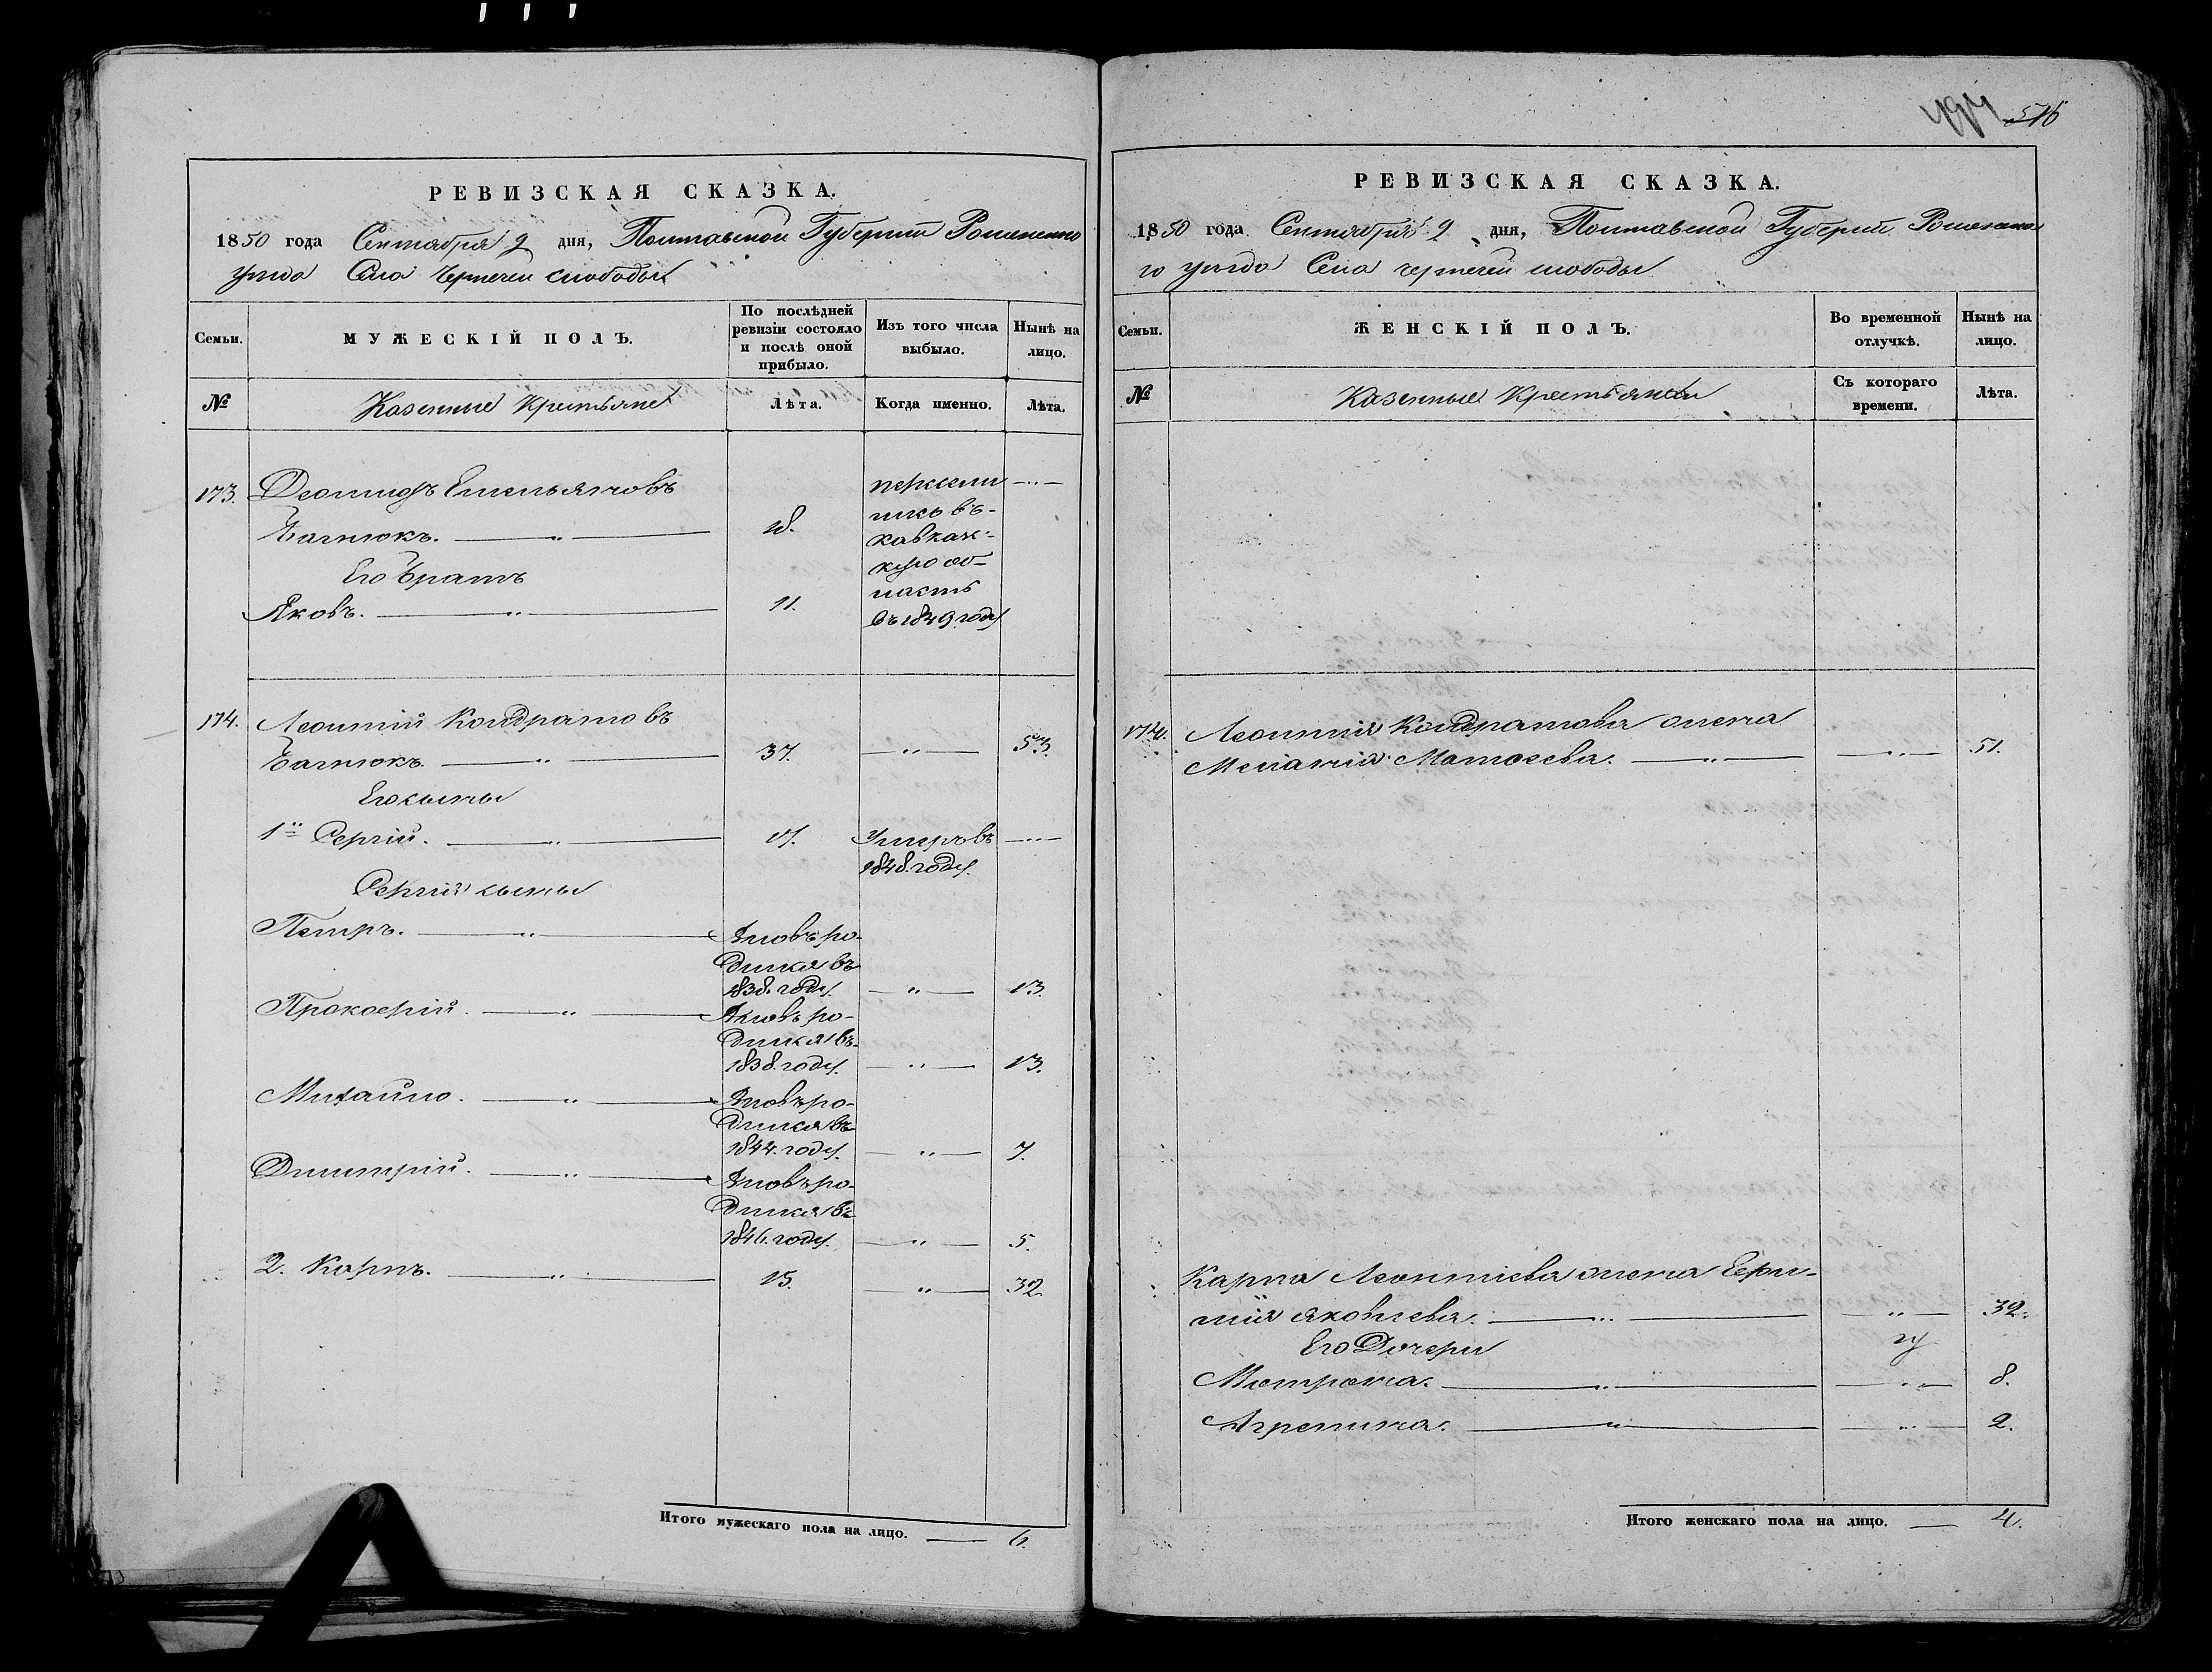 497 516
РЕВИЗСКАЯ СКАЗКА.
1850 года Сентября 2 дня, Полтавской Губернии Роменскаго
уезда Села Чернечей слободы
Семьи.
МУЖЕСКІЙ ПОЛЪ.
По послѣдней ревизіи состояло и послѣ оной прибыло.
Изъ того числа выбыло.
Нынѣ на лицо.
№
Казенные Крестьяне
Лѣта.
Когда именно.
Лѣта.
173. Леонидъ Емельяновъ
Багнюкъ. — " — 18.
пересели
лись въ-
кавказ-
кую об-
ласть
въ 1849 году
Его братъ
Яковъ. — " — 11.
174. Леонтій Кондратовъ
Багнюкъ. — " — 37. — " — 53.
Его сыны
1й Сергій. — " — 17. Умеръ въ
1848. году.
Сергія сыны
Петръ. — " — Вновь ро-
дился въ
1838. году. — " — 13.
Прокофій. — " — Вновь ро-
дился въ
1838. году. — " — 13.
Михайло. — " — Вновь ро-
дился въ
1844. году. — " — 7.
Дмитрій. — " — Вновь ро-
дился въ
1846. году. — " — 5.
2. Карпъ. — " — 15. — " — 32.
Итого мужескаго пола на лицо. — 6.
РЕВИЗСКАЯ СКАЗКА.
1850 года Сентября 2 дня, Полтавской Губерніи Роменска
го уезда Села чернечей слободы
Семьи.
ЖЕНСКІЙ ПОЛЪ.
Во временной отлучкѣ.
Нынѣ на лицо.
№
Казенные Крестьянки
Съ котораго времени.
Лѣта.
174. Леонтия Кондратова жена
Меланія Матвеева. — " — 51.
Карпа Леонтіева жена Евфи-
мія яковлева. — " — 32.
Его Дочери
Мотрона. — " — 8.
Агрепина. — " — 2.
Итого женскаго пола на лицо. — 4.